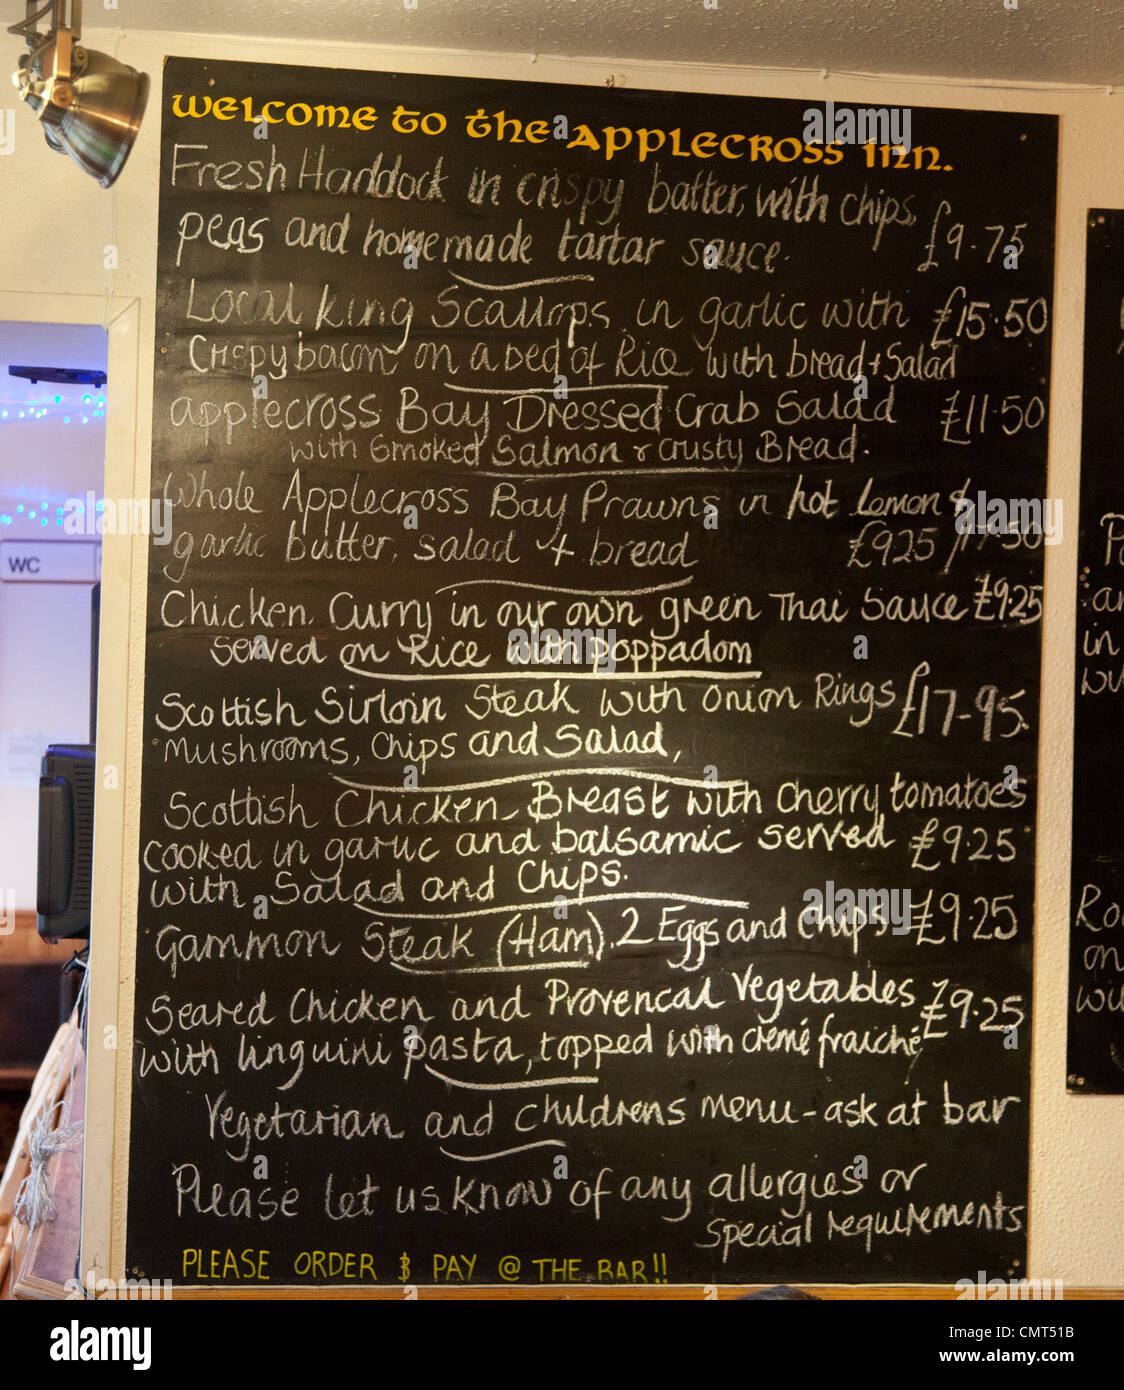 WELCOME TO THE APPLECROSS INN.
Fresh Haddock in crispy batter, with chips,
peas and homemade tartar sauce. £9.75
Local King Scallops in garlic with £15.50
Crispy bacon on a bed of Rice with bread + Salad
applecross Bay Dressed Crab Salad £11.50
with Smoked Salmon & Crusty Bread.
Whole Applecross Bay Prawns in hot lemon &
garlic butter, salad + bread £925/17.50
Chicken Curry in our own green Thai Sauce £9.25
Served on Rice with poppadom
Scottish Sirloin Steak with Onion Rings £17-95.
Mushrooms, Chips and Salad,
Scottish Chicken Breast with Cherry tomatoes
cooked in garlic and balsamic served £9.25
with Salad and Chips.
Gammon Steak (Ham). 2 Eggs and Chips £9.25
Seared Chicken and Provencal Vegetables £9.25
with linguini pasta, topped with crémé fraiché
Vegetarian and Childrens menu - ask at bar
Please let us know of any allergies or
special requirements
PLEASE ORDER & PAY @ THE BAR!!
WC
in
on
alamy
Image ID: CMT51B
www.alamy.com